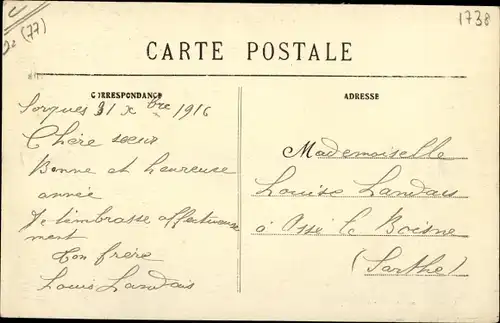 (77)
1738
CARTE POSTALE
CORRESPONDANCE
ADRESSE
Sorques 31 Xbre 1916
Chère sœur
Bonne et heureuse
année
Je t'embrasse affectueuse
ment
Ton frère
Louis Landais
Mademoiselle
Louise Landais
à Assé le Boisne
(Sarthe)